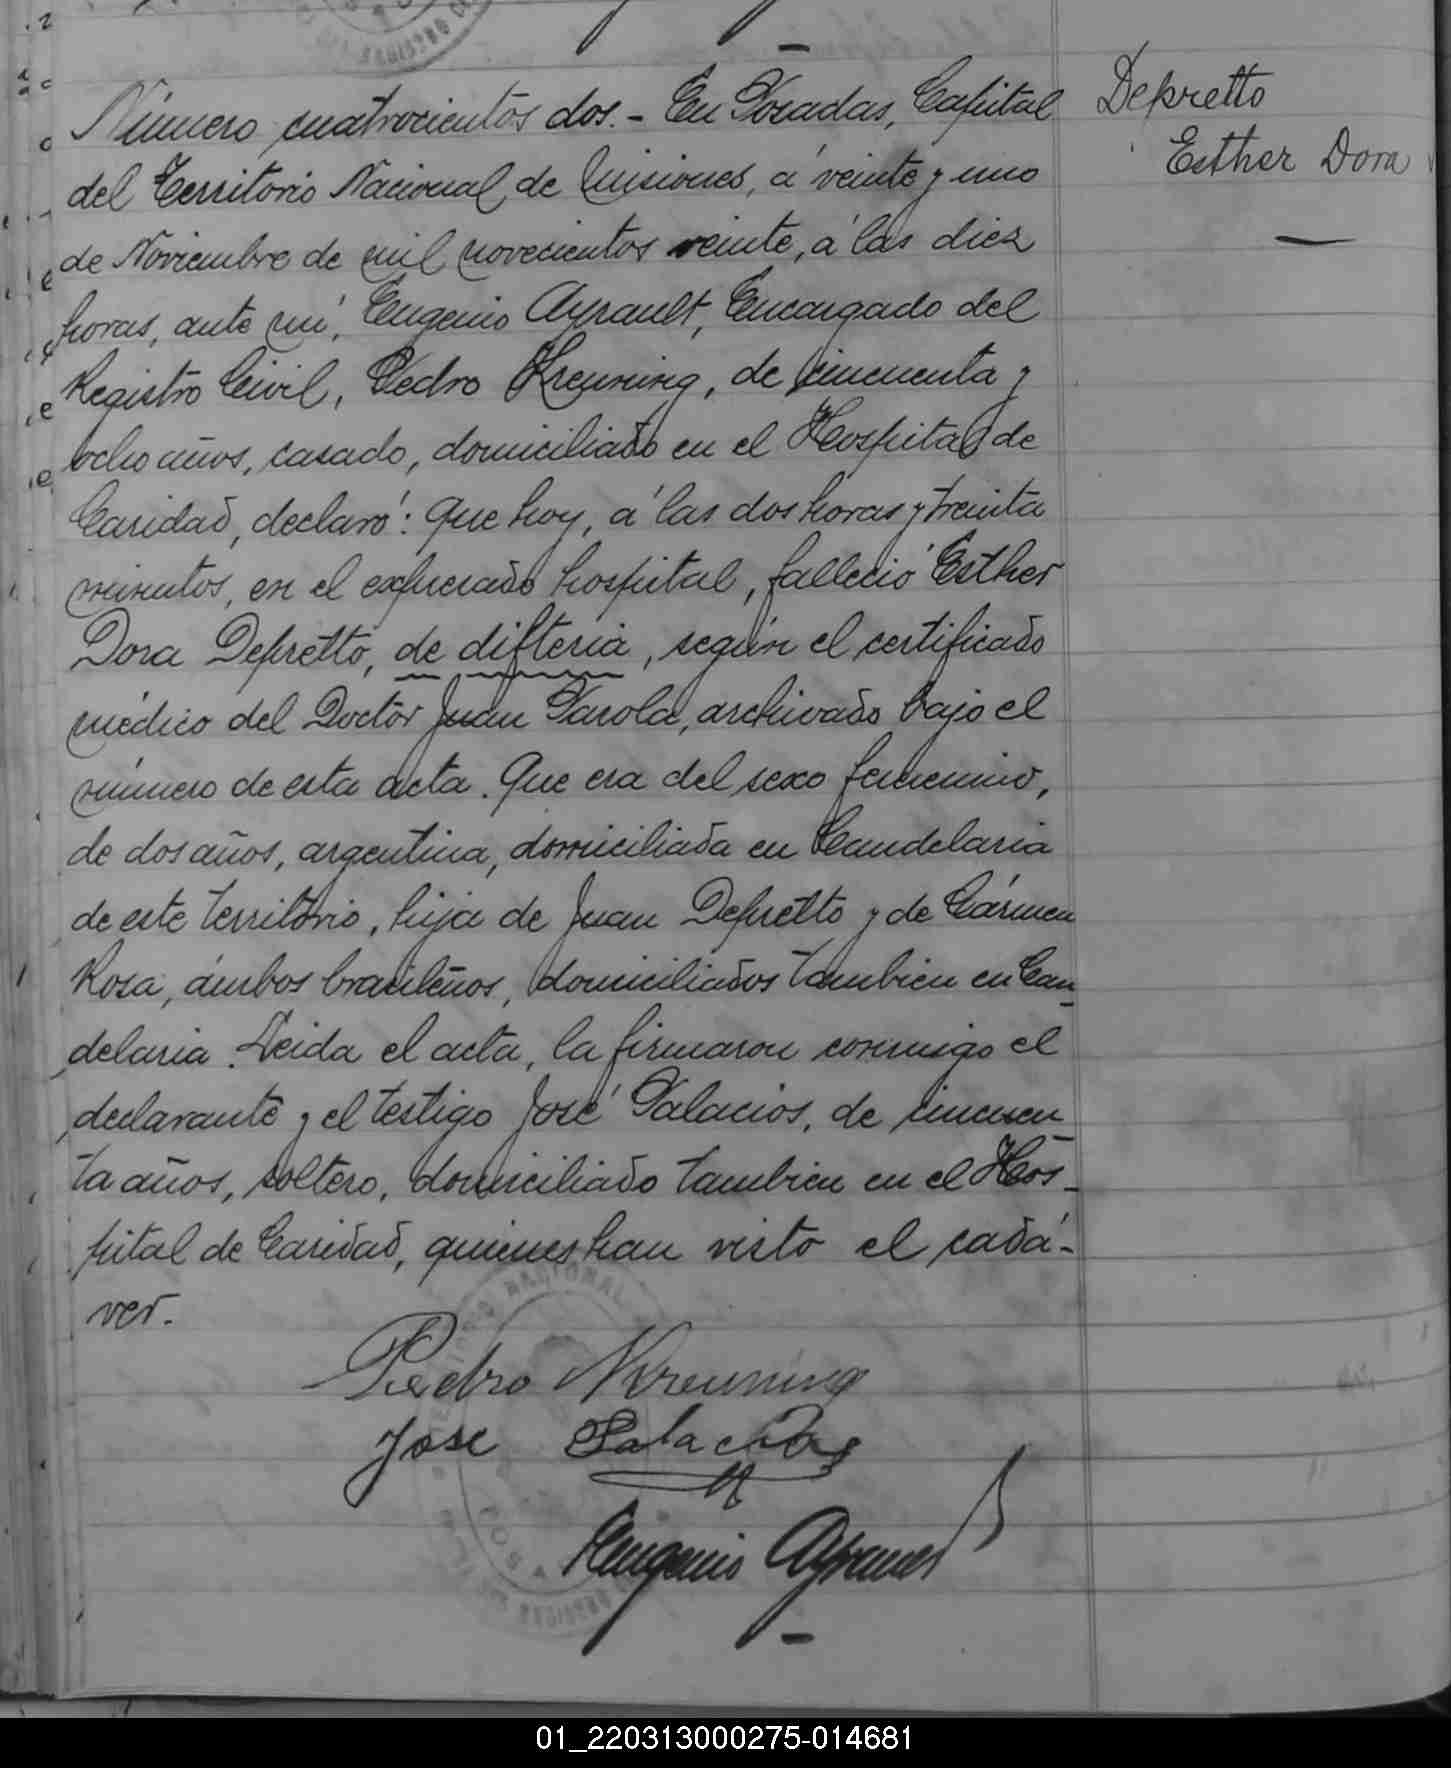 Número cuatrocientos dos. - En Posadas, Capital
del Territorio Nacional de Misiones, á veinte y uno
de Noviembre de mil novecientos veinte, á las diez
horas, ante mí, Eugenio Ayrault, Encargado del
Registro Civil, Pedro Kreuning, de cincuenta y
ocho años, casado, domiciliado en el Hospital de
Caridad, declaró: Que hoy, á las dos horas y treinta
minutos, en el expresado hospital, falleció Esther
Dora Depretto, de difteria, según el certificado
médico del Doctor Juan Parola, archivado bajo el
número de esta acta. Que era del sexo femenino,
de dos años, argentina, domiciliada en Candelaria
de este territorio, hija de Juan Depretto y de Cármen
Rosa, ámbos brasileños, domiciliados tambien en Can-
delaria. Leida el acta, la firmaron conmigo el
declarante y el testigo José Palacios, de cincuen-
ta años, soltero, domiciliado tambien en el Hos-
pital de Caridad, quienes han visto el cadá-
ver.
Depretto
Esther Dora
Pedro Kreuning
Jose Palacios
Eugenio Ayrault
01_220313000275-014681